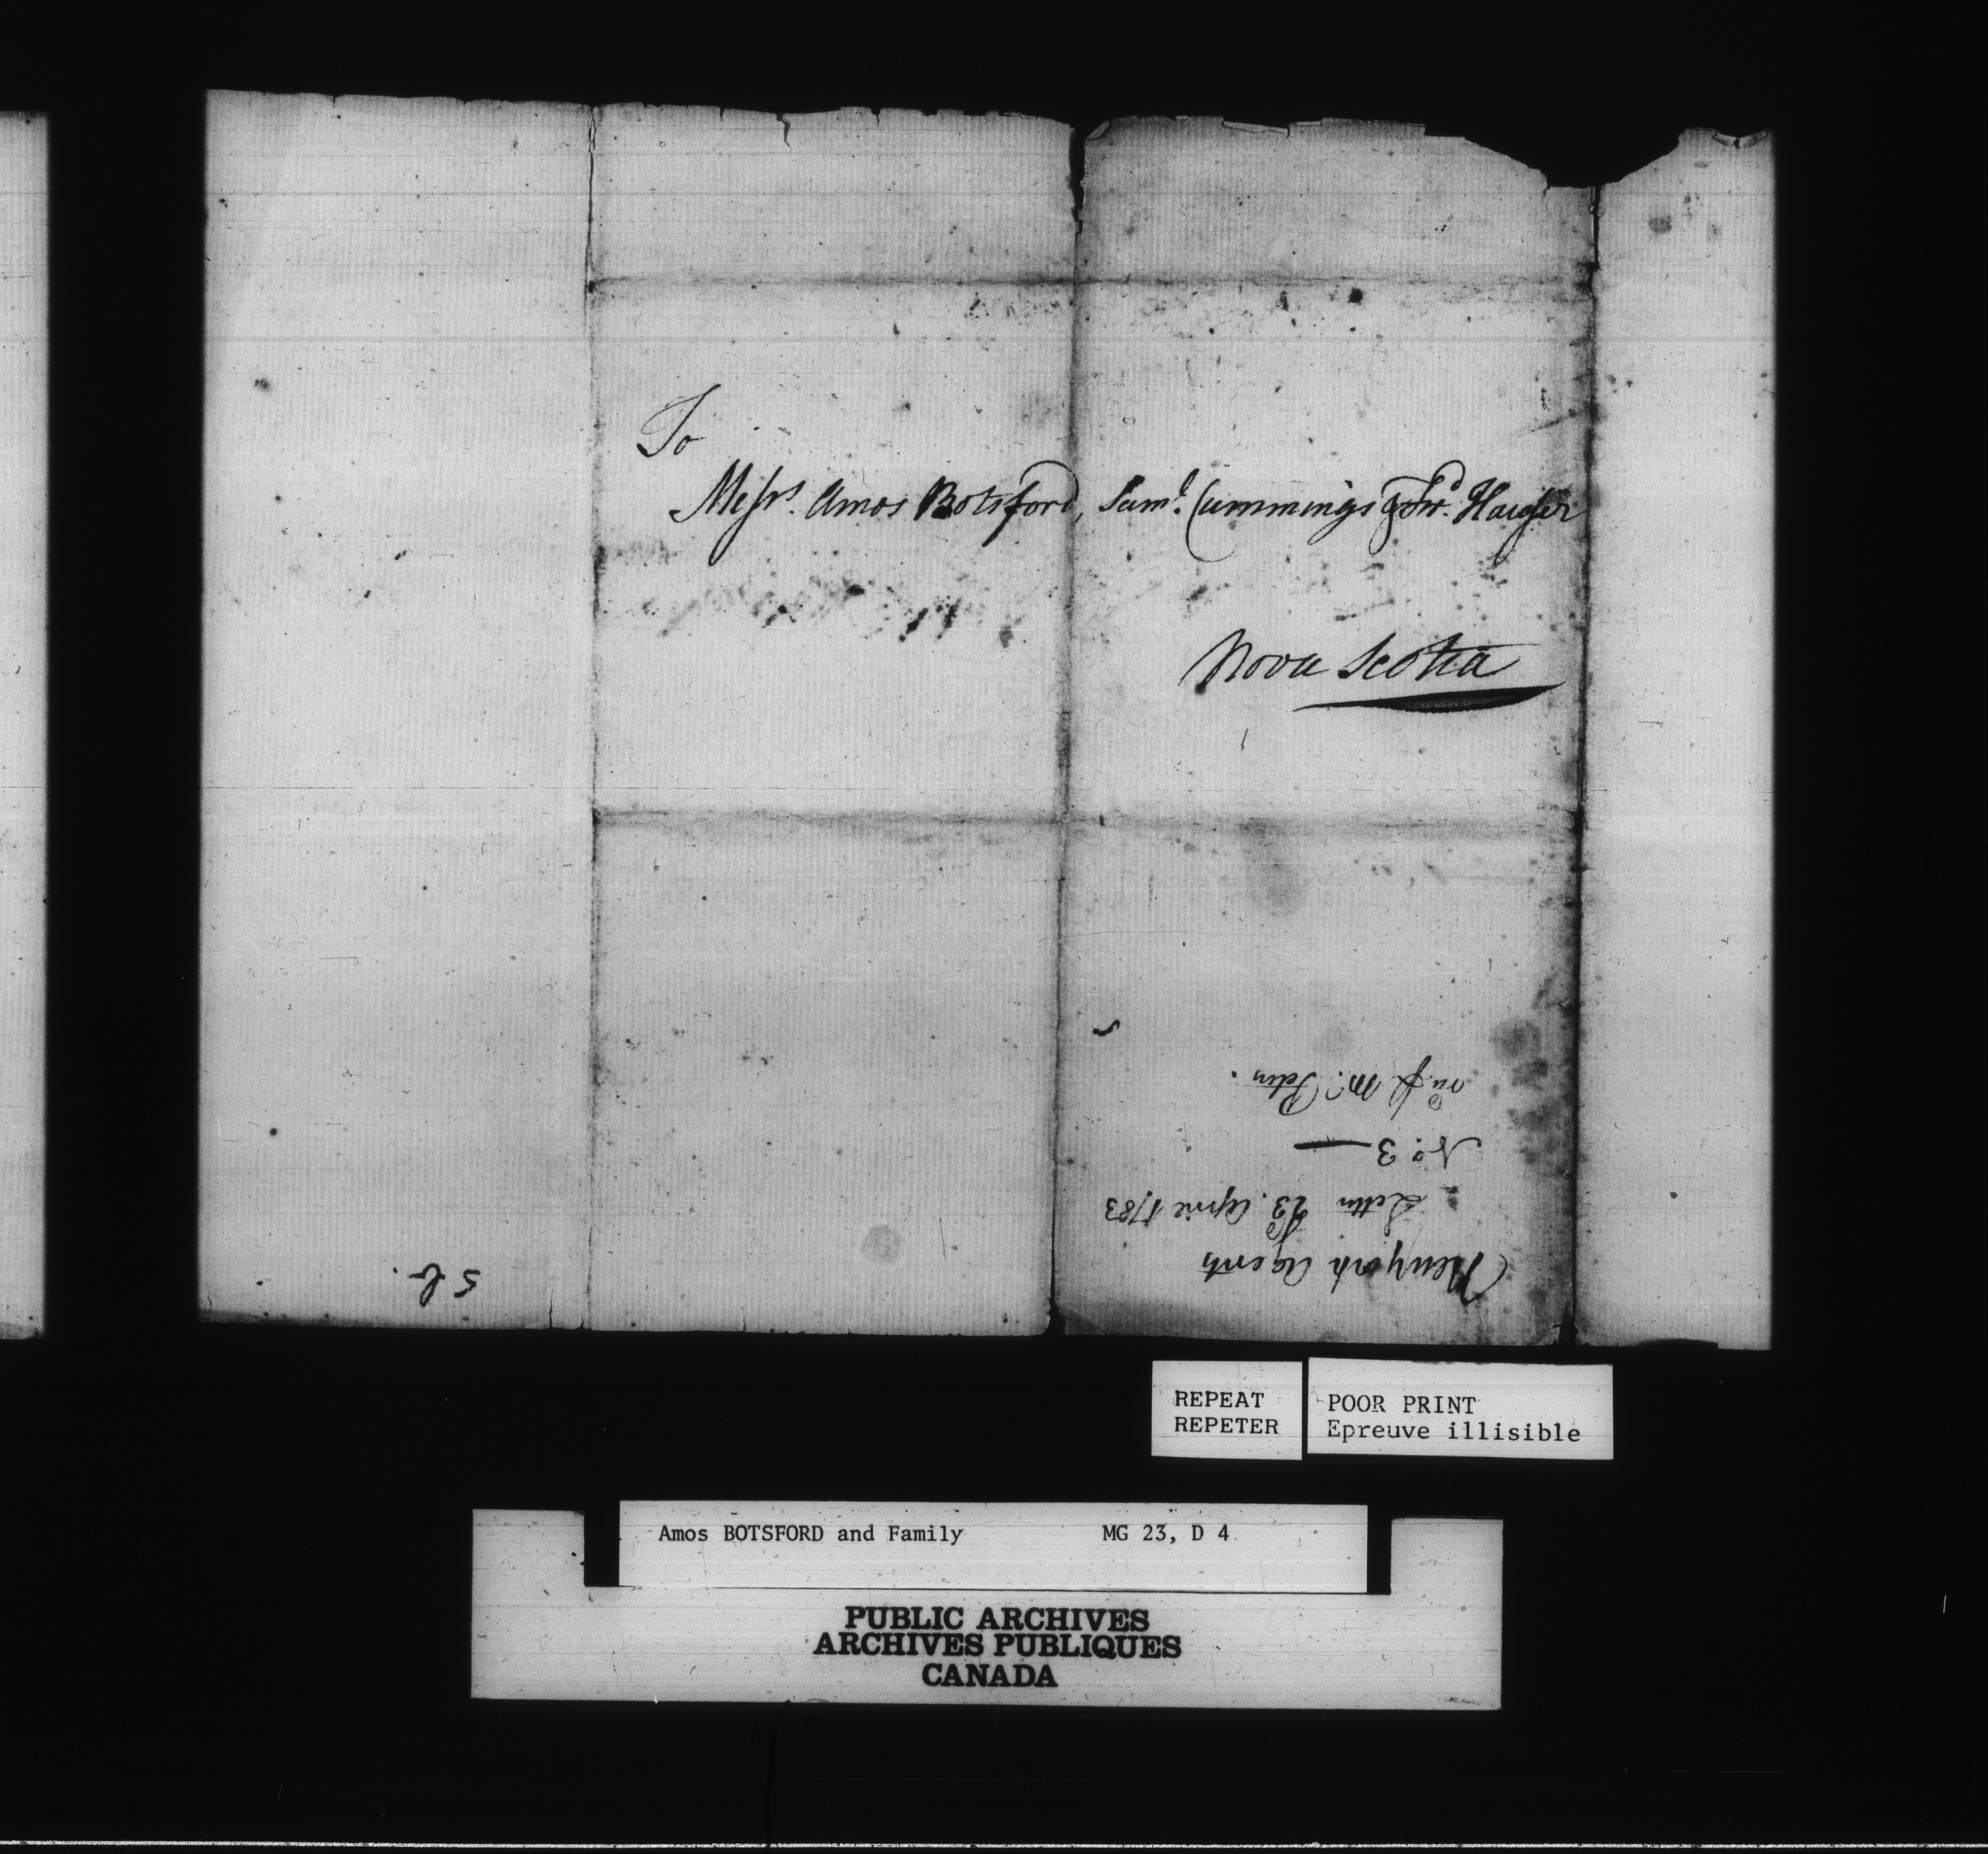 To
Messrs. Amos Botsford, Saml. Cummings & Fredk. Hauser
Nova Scotia
Newyork Agents
Letter 23. April 1783
No. 3
Mr. Peters.
5 b.
REPEAT
REPETER
POOR PRINT
Epreuve illisible
Amos BOTSFORD and Family MG 23, D 4
PUBLIC ARCHIVES
ARCHIVES PUBLIQUES
CANADA